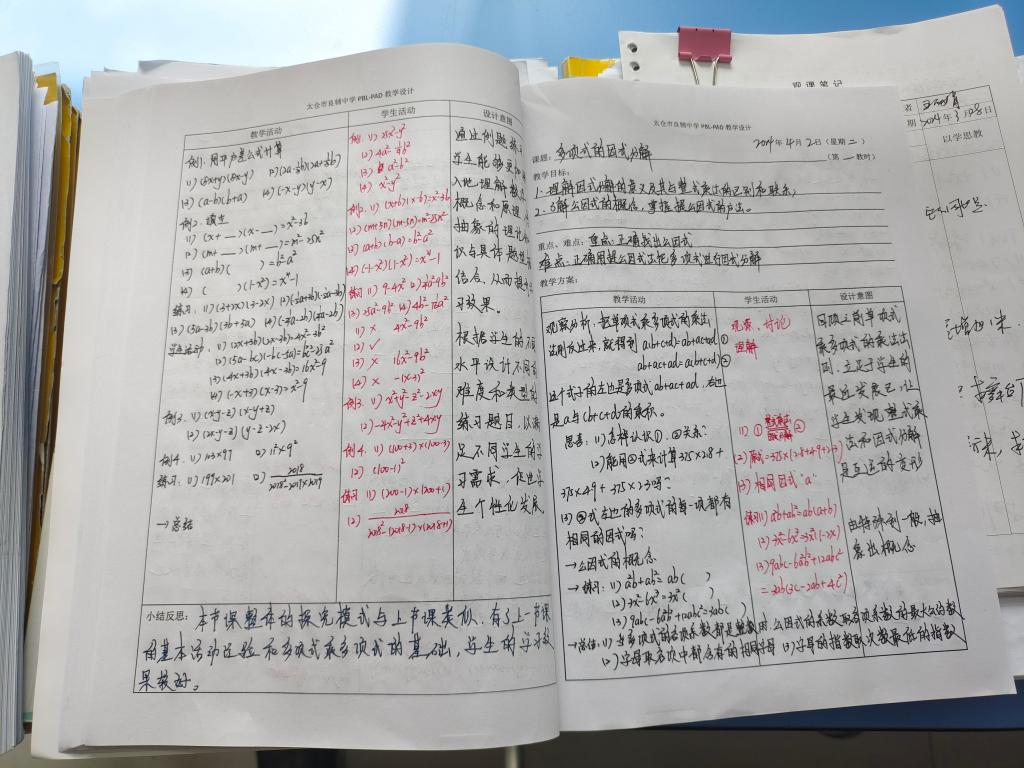 太仓市良辅中学 PBL-PAD 教学设计
教学活动
学生活动
设计意图
例1. 用平方差公式计算
(1) (5x+y)(5x-y)
(3) (a-b)(b+a) (4) (-x-y)(y-x)
例2. 填空
(1) (x+__)(x-__)=x²-36
(2) (m+__)(m+__)=m²-25n²
(3) (a+b)( )=b²-a²
(4) ( )(1-x²)=x⁴-1
练习: (1) (3+2x)(3-2x)
(3) (5a-3b)(3b+5a)
学生活动: (1) (2x+3b)(2x-3b)=4x²-3b²
(3) (4x+3b)(4x-3b)=16x²-9
(4) (-x+3)(x-3)=x²-9
例3. (1) (x+y-z)(x-y+z)
(2) (2x-y-z)(y-z-2x)
例4. (1) 103×97
练习: (1) 199×201 (2) 2018/2018²-2017×2019
→总结
例1 (1) 25x²-y²
(4) x²-y²
例2. (1) (x+6)(x-6)=x²-36
(2) (m+5n)(m-5n)=m²-25n²
(3) (a+b)(b-a)=b²-a²
(4) (-1-x²)(1-x²)=x⁴-1
练习 (1) 9-4x²
(3) 25a²-9b²
(1) × 4x²-9b²
(2) ✓
(3) × 16x²-9b²
(4) × -(x-3)²
例3. (1)
(2) -4x²-y²+z²+4xy
例4. (1) (100+3)×(100-3)
(2) (100-1)²
练习 (1) (200-1)×(200+1)
(2) 2018/2018²-(2018-1)×(2018+1)
通过例题练习
学生能够更加深
入地理解数学
概念和原理,
抽象的理论知
识与具体题型
结合,从而提升学
习效果。
根据学生的不同
水平设计不同的
难度和类型的
练习题目,以满
足不同学生的学
习需求,促进学
生个性化发展
小结反思: 本节课整体的探究模式与上节课类似,有了上一节课
的基本活动经验和多项式乘多项式的基础,学生的学习效
果较好。
太仓市良辅中学 PBL-PAD 教学设计
2024年4月2日(星期二)
课题: 多项式的因式分解
(第一教时)
教学目标:
1. 理解因式分解的意义及其与整式乘法的区别和联系,
2. 了解公因式的概念,掌握提公因式的方法。
重点、难点: 重点:正确找出公因式
难点:正确用提公因式法把多项式进行因式分解
教学方案:
教学活动
学生活动
设计意图
观察分析:把单项式乘多项式的乘法
法则反过来,就得到 a(b+c+d)=ab+ac+ad ①
ab+ac+ad=a(b+c+d) ②
这个式子的左边是多项式ab+ac+ad,右边
是a与(b+c+d)的乘积。
思考: (1) 怎样认识①、②关系?
(2) 能用②式来计算375×2.8+
375×4.9+375×2.3吗?
(3) ②式左边的多项式的每一项都有
相同的因式吗?
→公因式的概念
→练习: (1) a²b+ab²=ab( )
(2) 3x²-6x³=3x²( )
(3) 9abc-6a²b²+12abc²=3ab( )
→总结: (1) 当多项式的各项系数都是整数时,公因式的系数取各项系数的最大公约数
(2) 字母取各项中都含有的相同字母 (3) 字母的指数取次数最低的指数
观察、讨论
理解
(1) ① 整式乘法 因式分解 ②
(2) 原式=375×(2.8+4.9+2.3)
(3) 相同因式"a"
练习(1) a²b+ab²=ab(a+b)
(2) 3x²-6x³=3x²(1-2x)
(3) 9abc-6a²b²+12abc²
=3ab(3c-2ab+4c²)
回顾之前单项式
乘多项式的乘法法
则,立足于学生的
最近发展区,让
学生发现整式乘
法和因式分解
是互逆的变形
由特殊到一般,推
展出概念
观课笔记
者
期 2024年3月28日
以学思教